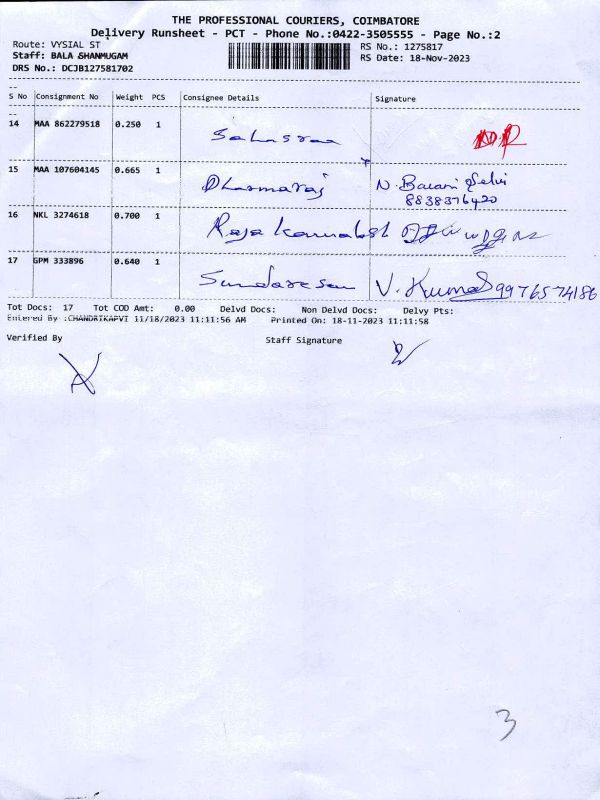 THE PROFESSIONAL COURIERS, COIMBATORE
Delivery Runsheet - PCT - Phone No.:0422-3505555 - Page No.:2
Route: VYSIAL ST RS No.: 1275817
Staff: BALA SHANMUGAM RS Date: 18-Nov-2023
DRS No.: DCJB127581702
S No Consignment No Weight PCS Consignee Details Signature
14 MAA 862279518 0.250 1 Sahasraa
15 MAA 107604145 0.665 1 Dharmaraj N. Barani Selvi
8838376420
16 NKL 3274618 0.700 1 Raja
17 GPM 333896 0.640 1 Sundaresan V. Kumar 9976574186
Tot Docs: 17 Tot COD Amt: 0.00 Delvd Docs: Non Delvd Docs: Delvy Pts:
Entered By :CHANDRIKAPVT 11/18/2023 11:11:56 AM Printed On: 18-11-2023 11:11:58
Verified By Staff Signature
3